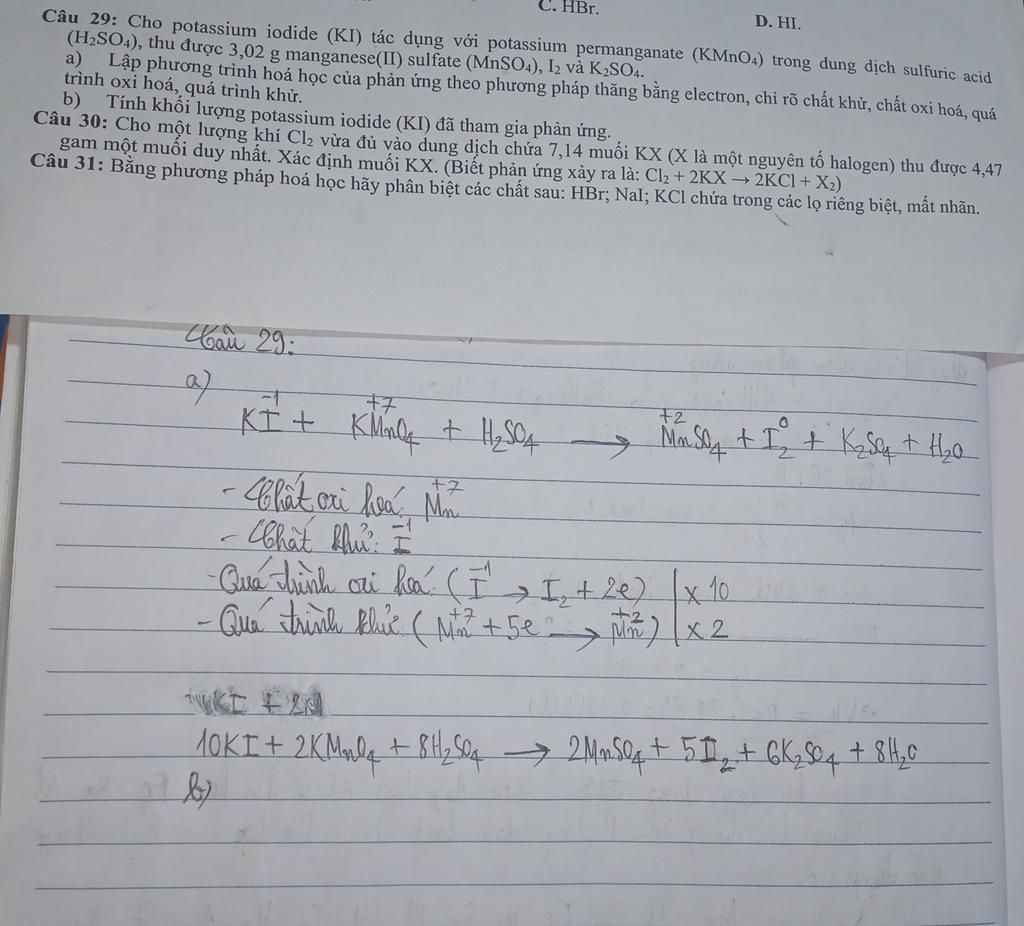 C. HBr.
D. HI.
Câu 29: Cho potassium iodide (KI) tác dụng với potassium permanganate (KMnO₄) trong dung dịch sulfuric acid
(H₂SO₄), thu được 3,02 g manganese(II) sulfate (MnSO₄), I₂ và K₂SO₄.
a) Lập phương trình hoá học của phản ứng theo phương pháp thăng bằng electron, chỉ rõ chất khử, chất oxi hoá, quá
trình oxi hoá, quá trình khử.
b) Tính khối lượng potassium iodide (KI) đã tham gia phản ứng.
Câu 30: Cho một lượng khí Cl₂ vừa đủ vào dung dịch chứa 7,14 muối KX (X là một nguyên tố halogen) thu được 4,47
gam một muối duy nhất. Xác định muối KX. (Biết phản ứng xảy ra là: Cl₂ + 2KX → 2KCl + X₂)
Câu 31: Bằng phương pháp hoá học hãy phân biệt các chất sau: HBr; NaI; KCl chứa trong các lọ riêng biệt, mất nhãn.
Câu 29:
a)
-1 +7 +2 0
KI + KMnO₄ + H₂SO₄ → MnSO₄ + I₂ + K₂SO₄ + H₂O
+7
- Chất oxi hoá: Mn
-1
- Chất khử: I
-1
- Quá trình oxi hoá: (I → I₂ + 2e) | x 10
+7 +2
- Quá trình khử: (Mn + 5e → Mn) | x 2
10KI + 2KMnO₄ + 8H₂SO₄ → 2MnSO₄ + 5I₂ + 6K₂SO₄ + 8H₂O
b)